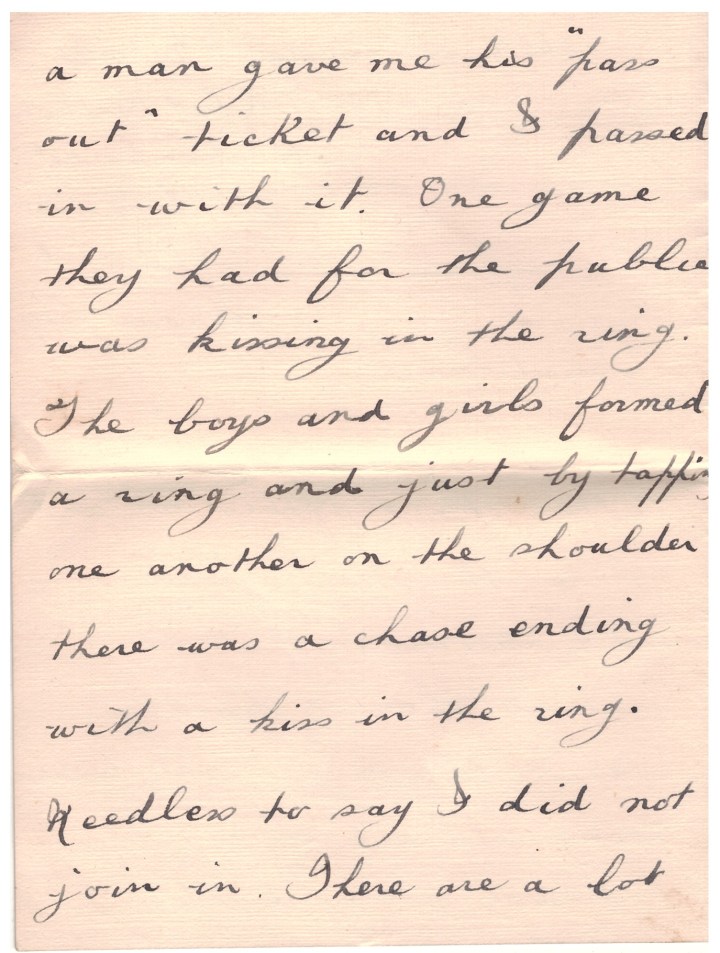 a man gave me his "pass
out" ticket and I passed
in with it. One game
they had for the public
was kissing in the ring.
The boys and girls formed
a ring and just by tapping
one another on the shoulder
there was a chase ending
with a kiss in the ring.
Needless to say I did not
join in. There are a lot